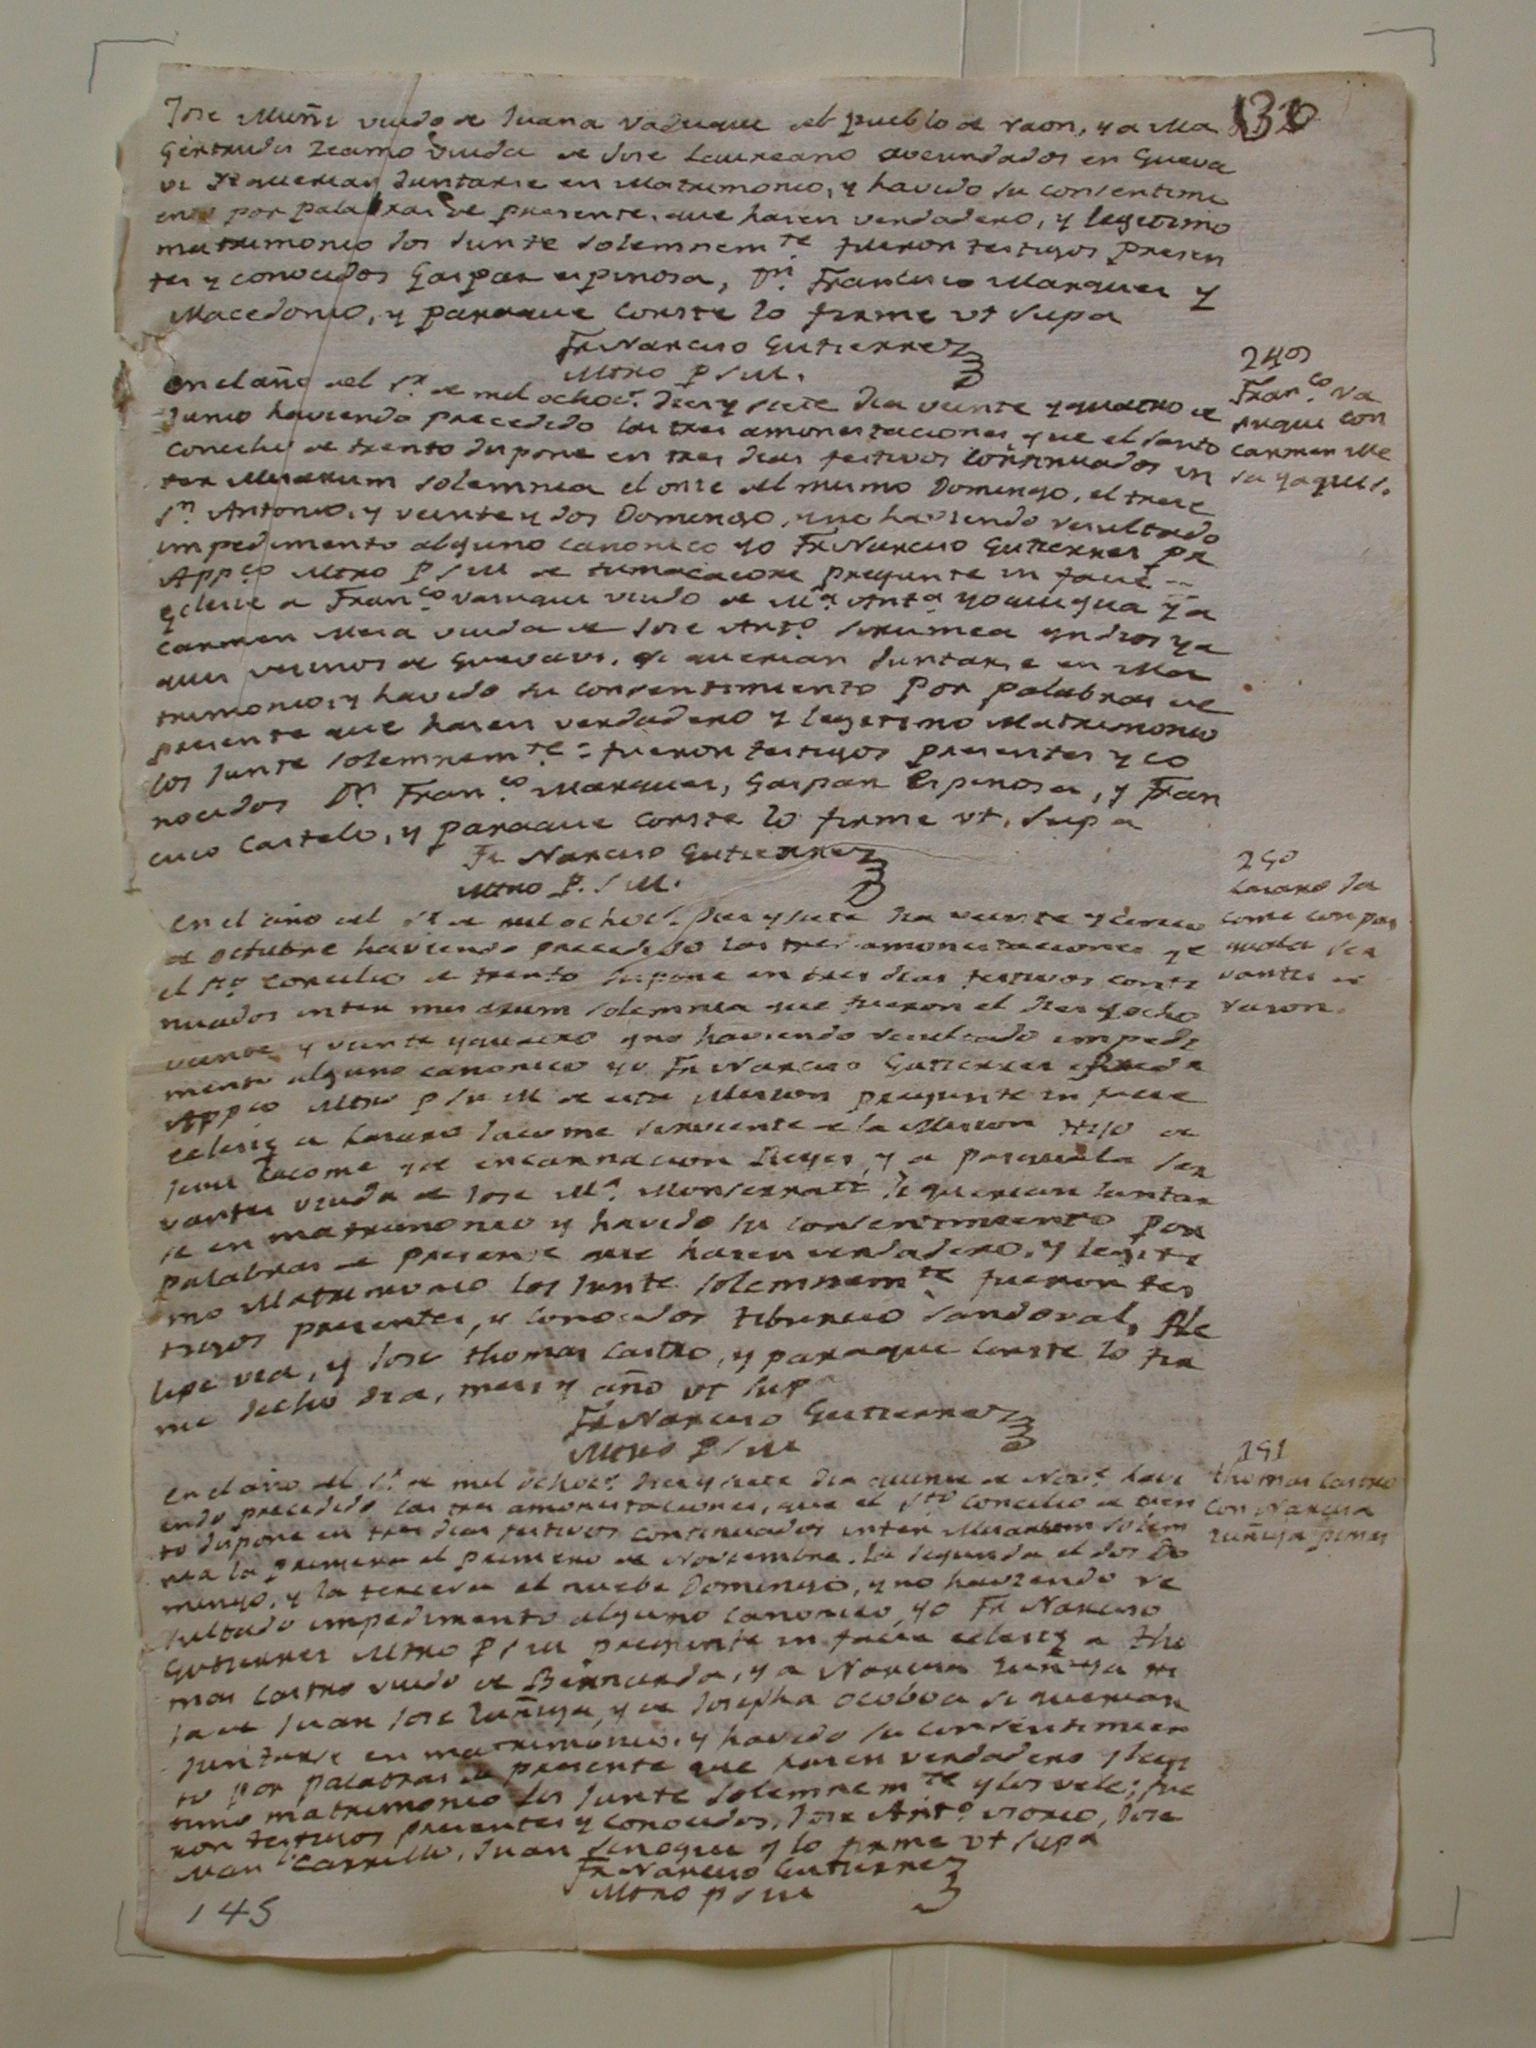 130
Jose Muñi viudo de Juana Vaduque del pueblo de raon, y a Ma
Gertrudis Zeamo viuda de Jose Laureano avecindados en Gueva
vi si querian Juntarse en Matrimonio, y havido su consentimi
ento por palabras de presente, que hasen verdadero, y legitimo
matrimonio los Junte solemnemte fueron testigos presen
tes y conocidos Gaspar espinosa, Dn. Francisco Marques y
Macedonio, y paraque Conste lo firme vt supa
Fr Narciso Gutierrez
Mtro P S M.
249
Franco. Va
suque con
carmen Me
sa yaquis.
en el año del Sr. de mil ochoc.s dies y siete dia veinte y quatro de
Junio haviendo precedido las tres amonestaciones, que el Santo
Concilio de trento dispone en tres dias festivos continuados in
ter Misarum solemnia el onse del mismo Domingo, el trese
Sn. Antonio, y veinte y dos Domingo, y no haviendo resultado
impedimento alguno canonico yo Fr Narciso Gutierres Pr
Appco Mtro P S M de tumacacori pregunte in facie
eclesie a Franco. Vasuque viudo de Ma. Anta. yoquigua y a
Carmen Mesa viuda de Jose Anto. Sirumea yndios ya
quis vecinos de Guevavi, si querian Juntarse en Ma
trimonio, y havido su consentimiento por palabras de
presente que hasen verdadero y legitimo Matrimonio
los Junte solemnemte = fueron testigos presentes y co
nocidos Dn. Franco. Marques, Gaspar Espinosa, y Fran
cisco Castelo, y paraque conste lo firme vt. supa
Fr Narciso Gutierrez
Mtro P. S M.
250
Lasaro Ja
come con pas
quala ser
vantes de
rason.
en el año del Sr. de mil ochocs. dies y siete dia veinte y cinco
de octubre haviendo precedido las tres amonestaciones qe
el Sto. Concilio de trento dispone en tres dias festivos conti
nuados inter misarum solemnia que fueron el dies y ocho
veinte y veinte y quatro y no haviendo resultado impedi
mento alguno canonico yo Fr Narciso Gutierres
Appco Mtro P S M de esta Mission pregunte in facie
eclesie a Lasaro Jacome sirviente de la Mission Hijo de
Juan Jacome y de encarnacion Reyes, y a pasquala ser
vantes viuda de Jose Ma. Monserrate si querian Juntar
se en matrimonio y havido su consentimiento por
palabras de presente que hasen verdadero, y legiti
mo Matrimonio los Junte solemnemte fueron tes
tigos presentes, y conocidos tiburcio Sandoval, Fe
lipe vea, y Jose thomas Castro, y paraque conste lo fir
me dicho dia, mes y año vt supa
Fr Narciso Gutierrez
Mtro P S M
251
thomas Castro
con Narcisa
Zuñiga pimas
en el año del Sr. de mil ochocs. dies y siete dia quinse de Nove. havi
endo precedido las tres amonestaciones, que el Sto Concilio de tren
to dispone en tres dias festivos continuados inter Misarum solem
nia la primera el primero de Noviembre. la segunda el dos Do
mingo, y la tercera el nuebe Domingo, y no haviendo re
sultado impedimento alguno canonico, yo Fr Narciso
Gutierres Mtro P S M pregunte in facie eclesie a Tho
mas Castro viudo de Bernarda, y a Narcisa Zuñiga hi
ja de Juan Jose Zuñiga, y de Josepha ocoboa si querian
Juntarse en matrimonio, y havido su consentimien
to por palabras de presente que hasen verdadero y legi
timo matrimonio los Junte solemnemte y los vele; fue
ron testigos presentes y conocidos, Jose Anto. osorio, Jose
Man. Carrillo, Juan Sinoqui y lo firme vt supa
Fr Narciso Gutierrez
Mtro P S M
145